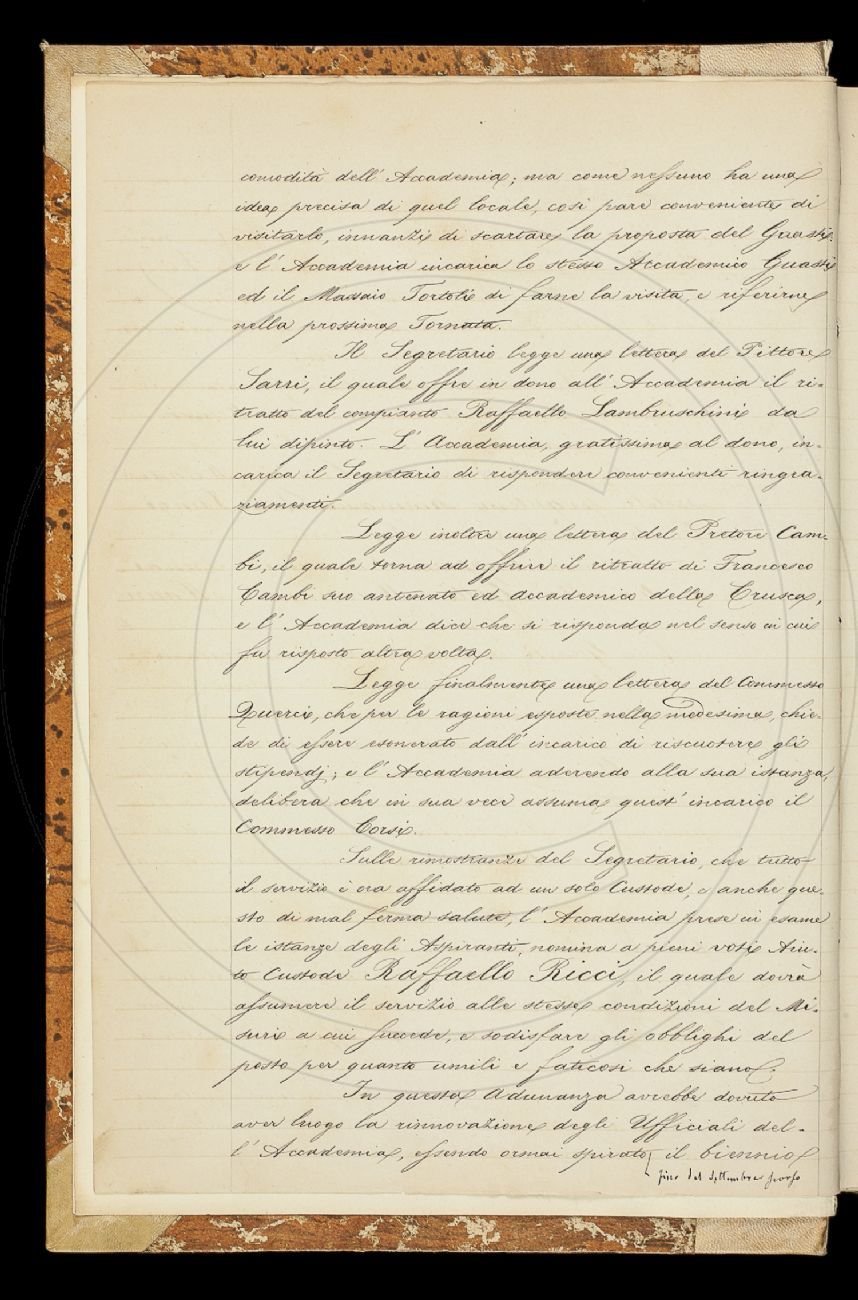 comodità dell' Accademia; ma come nessuno ha una
idea precisa di quel locale, così pare conveniente di
visitarlo, innanzi di scartare la proposta del Guasti:
e l' Accademia incarica lo stesso Accademico Guasti
ed il Massaio Tortoli di farne la visita, e riferirne
nella prossima Tornata.
Il Segretario legge una lettera del Pittore
Sarri, il quale offre in dono all' Accademia il ri-
tratto del compianto Raffaello Lambruschini da
lui dipinto. L' Accademia, gratissima al dono, in-
carica il Segretario di rispondere convenienti ringra-
ziamenti.
Legge inoltre una lettera del Pretore Cam-
bi, il quale torna ad offrire il ritratto di Francesco
Cambi suo antenato ed accademico della Crusca,
e l' Accademia dice che si risponda nel senso in cui
fu risposto altra volta.
Legge finalmente una lettera del Commesso
Querci, che per le ragioni esposte nella medesima, chie-
de di essere esonerato dall' incarico di riscuotere gli
stipendj; e l' Accademia aderendo alla sua istanza,
delibera che in sua vece assuma quest' incarico il
Commesso Corsi.
Sulle rimostranze del Segretario, che tutto
il servizio è ora affidato ad un solo Custode, e anche que-
sto di mal ferma salute, l' Accademia prese in esame
le istanze degli Aspiranti, nomina a pieni voti Aiu-
to Custode Raffaello Ricci, il quale dovrà
assumere il servizio alle stesse condizioni del Mi-
suri a cui succede, e sodisfare gli obblighi del
posto per quanto umili e faticosi che siano.
In questa Adunanza avrebbe dovuto
aver luogo la rinnovazione degli Ufficiali del-
l' Accademia, essendo ormai spirato il biennio
fino dal settembre scorso